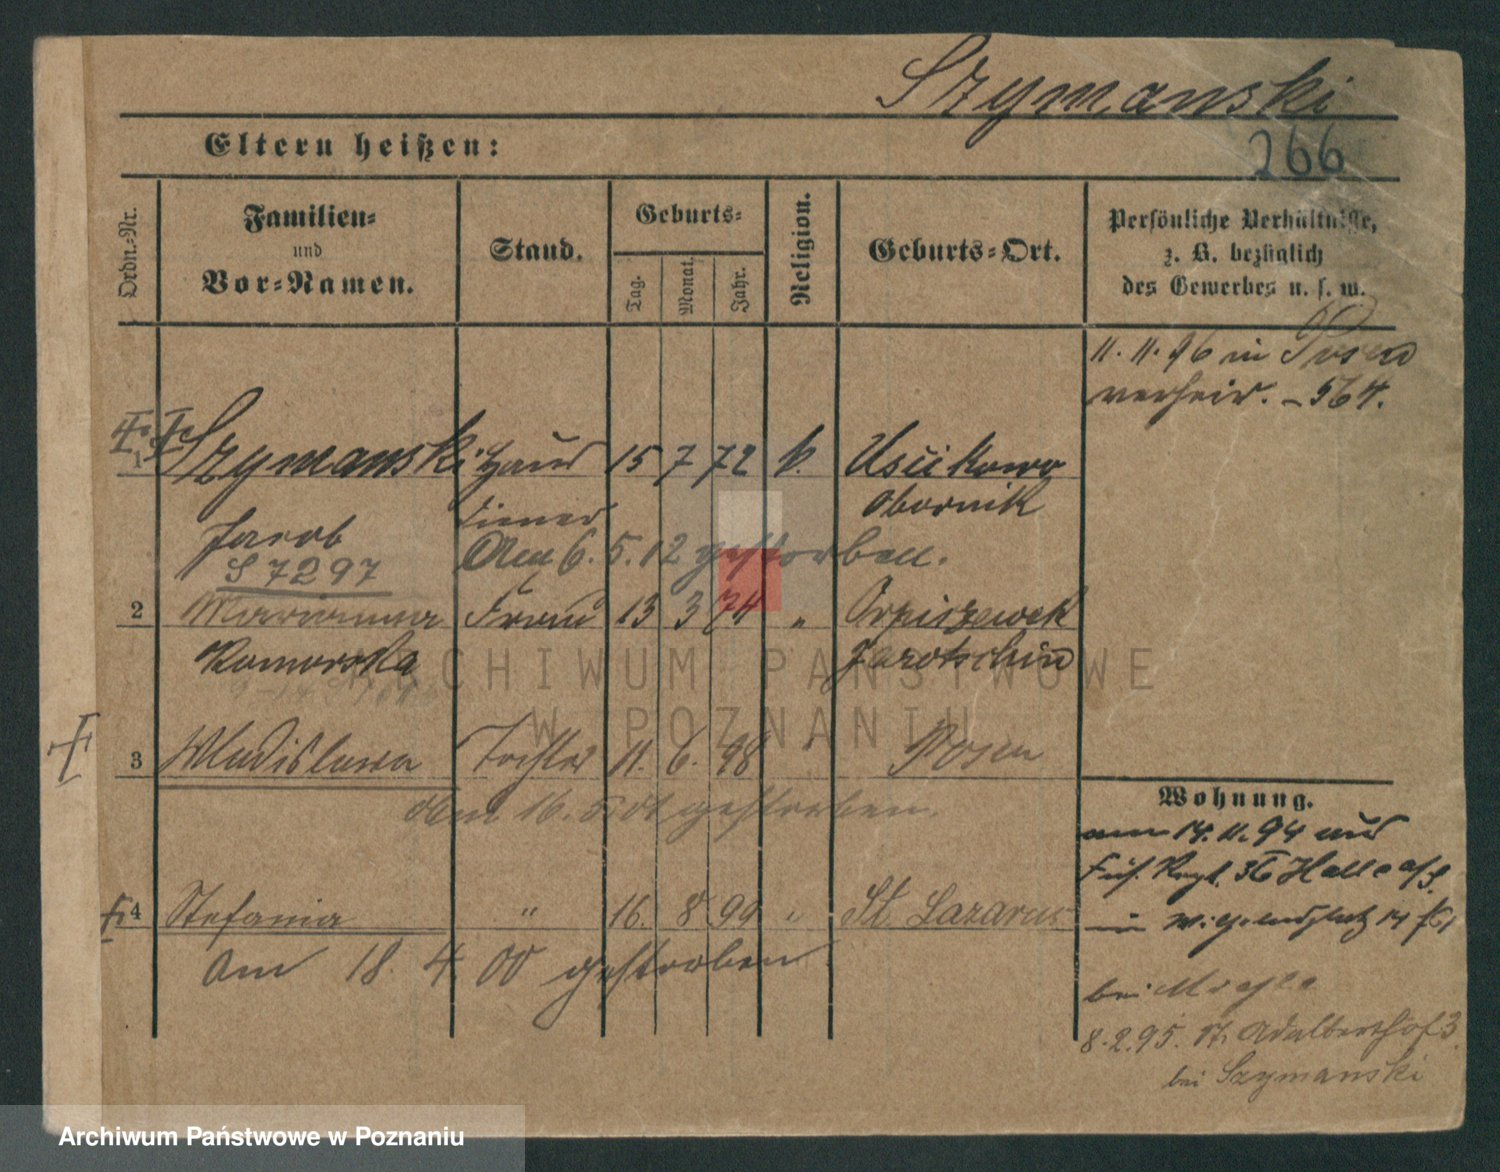 Szymanski
Eltern heißen:
266
Ordn.-Nr.
Familien-
und
Vor-Namen.
Stand.
Geburts-
Tag.
Monat.
Jahr.
Religion.
Geburts-Ort.
Persönliche Verhältnisse,
z. B. bezüglich
des Gewerbes u. s. w.
11. 11. 96 in Posen
verheir. – 564.
1 Szymanski Haus 15 7 72 k. Uścikowo
diener Obornik
Jacob
Am 6. 5. 12 gestorben.
S 7297
2 Marianna Frau 13 3 74 " Orpiszewek
Komorska Jarotschin
ARCHIWUM PAŃSTWOWE
W POZNANIU
3 Wladislawa Tochter 11. 6. 98 " Posen
Wohnung.
am 16. 5. 01 gestorben.
am 14. 11. 94 aus
Füs. Regt. 36 Halle a/S.
4 Stefania " 16. 8 99 " St. Lazarus
in 14
am 18. 4. 00 gestorben
bei
8. 2. 95. St. Adalberthof 3.
bei Szymanski
Archiwum Państwowe w Poznaniu